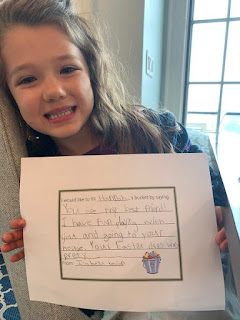 I would like to fill Hannah's bucket by saying:
You are my best friend!
I have fun playing with
you and going to your
house. Your Easter dress was
pretty.